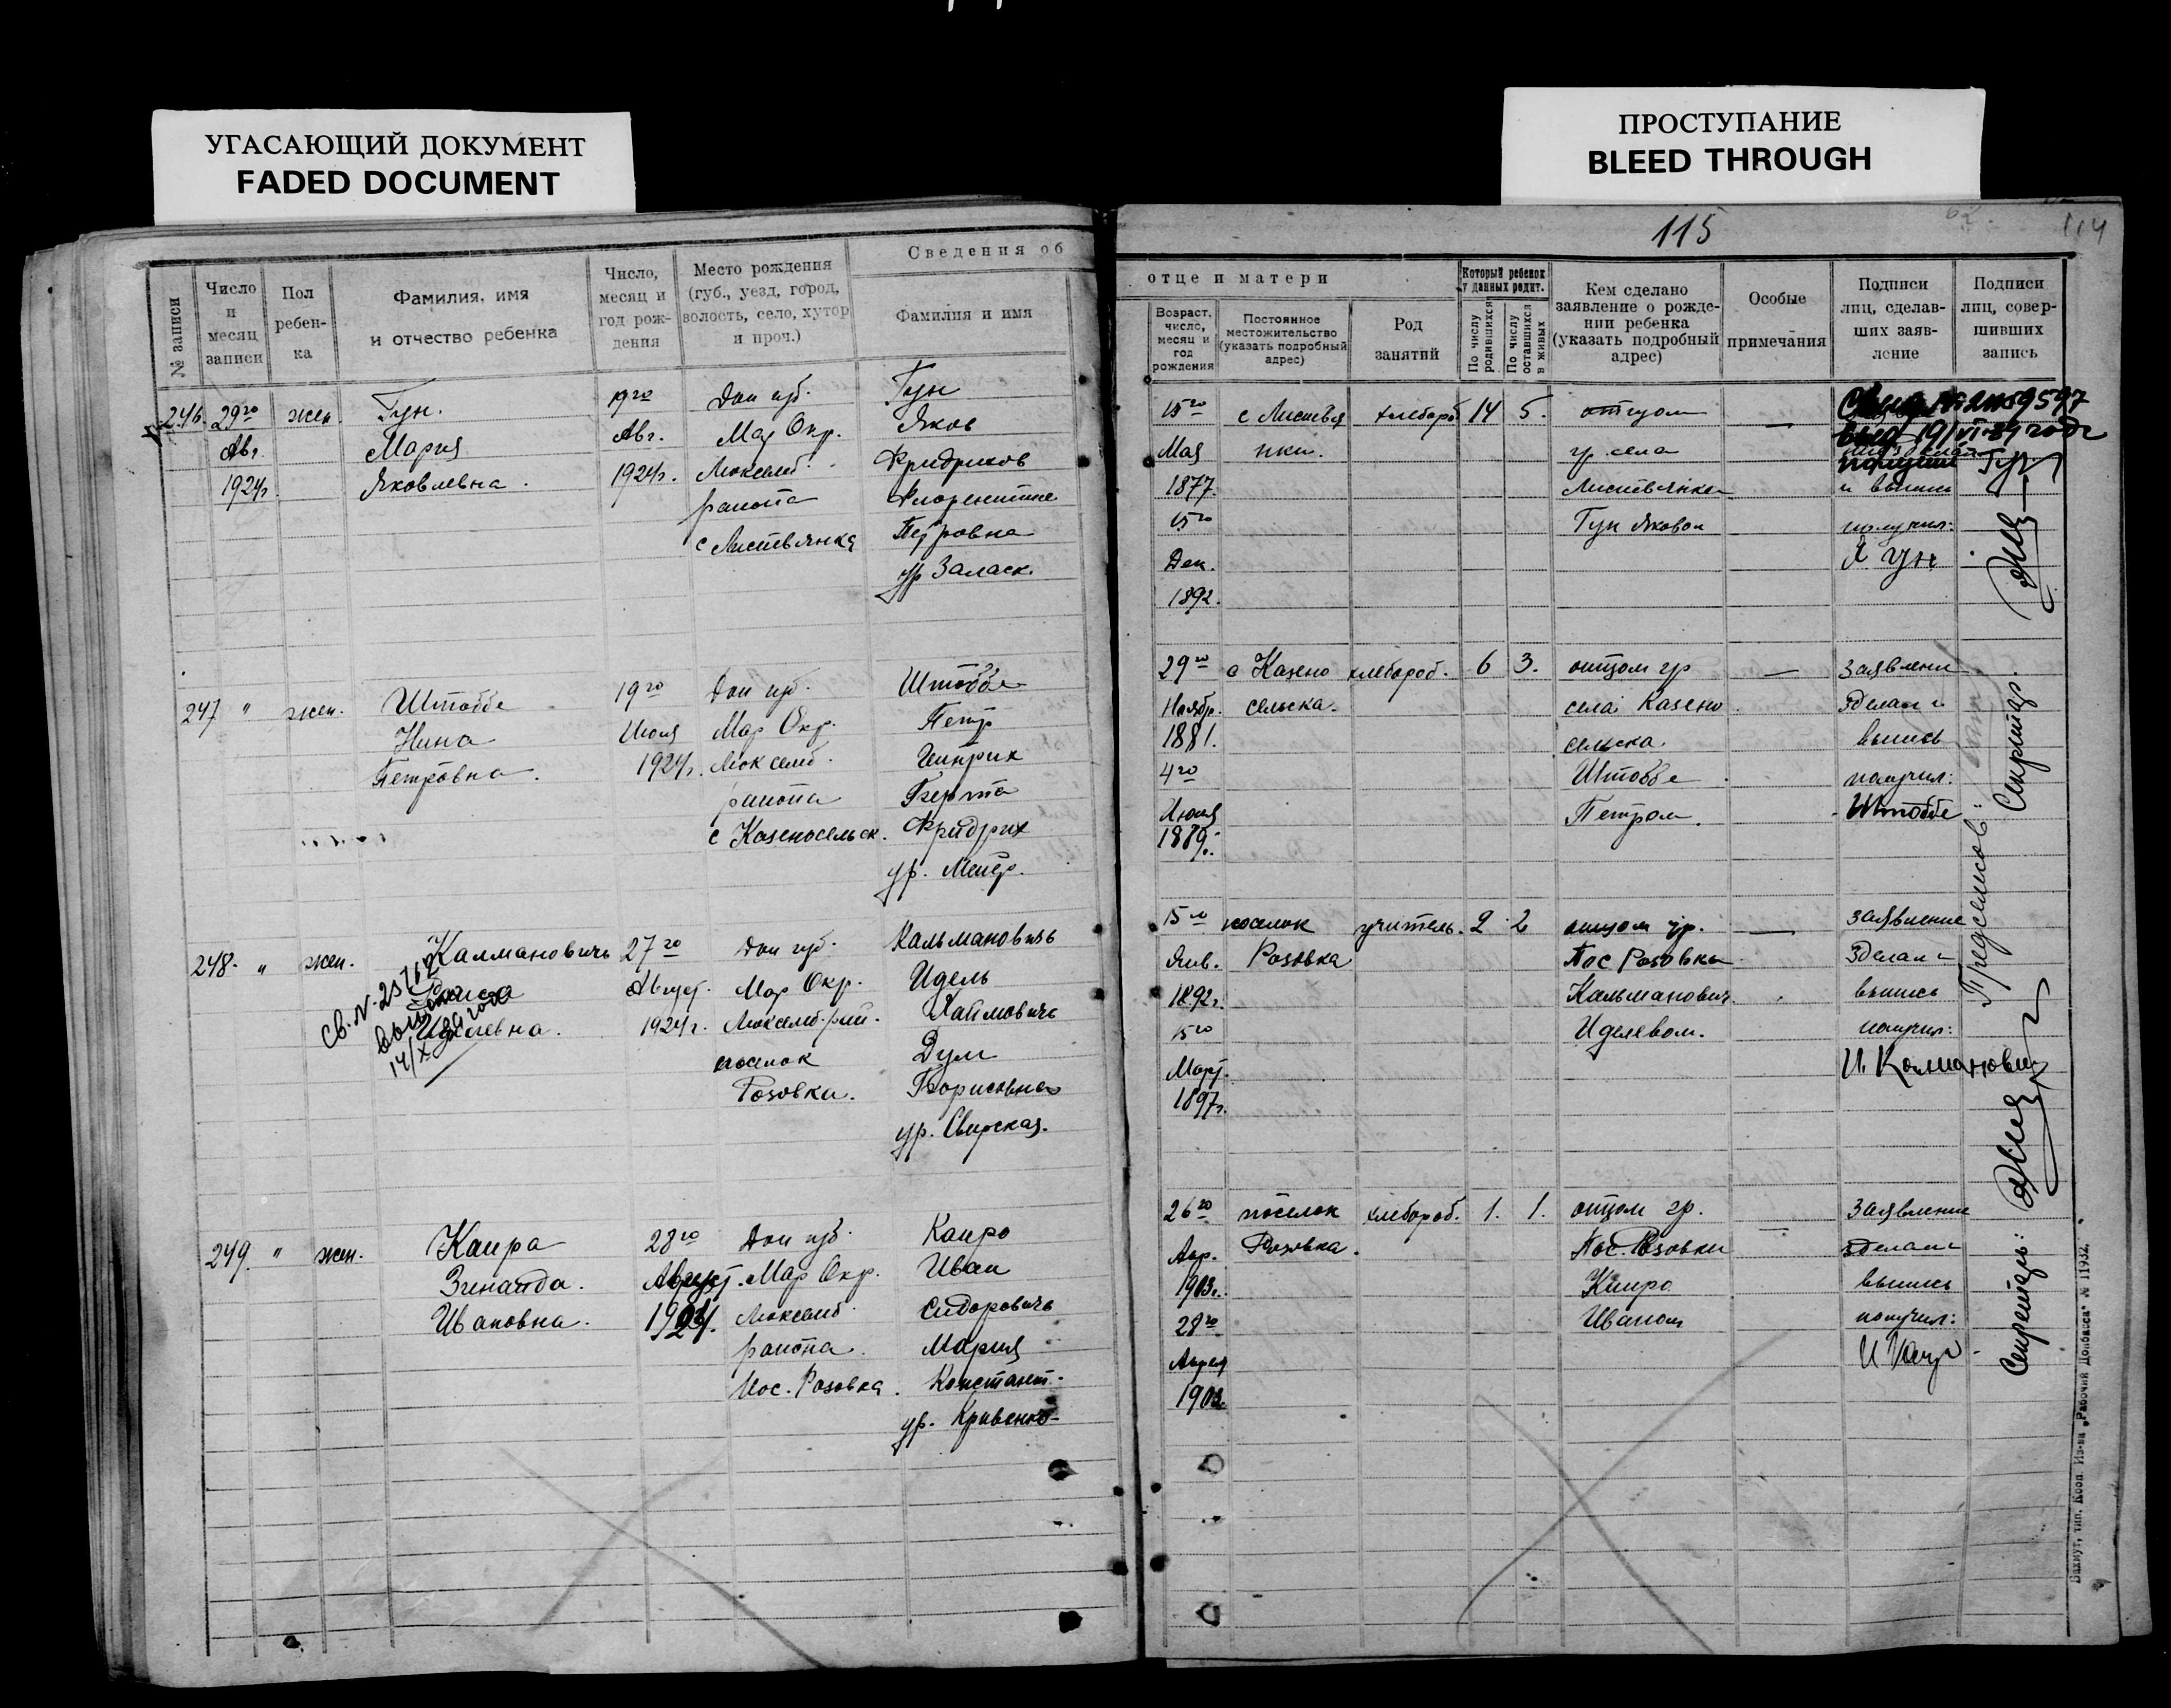 УГАСАЮЩИЙ ДОКУМЕНТ
FADED DOCUMENT
ПРОСТУПАНИЕ
BLEED THROUGH
115
114
№ записи
Число и месяц записи
Пол ребен-ка
Фамилия, имя и отчество ребенка
Число, месяц и год рож-дения
Место рождения (губ., уезд, город, волость, село, хутор и проч.)
Сведения об
Фамилия и имя
отце и матери
Возраст, число, месяц и год рождения
Постоянное местожительство (указать подробный адрес)
Род занятий
Который ребенок у данных родит.
По числу родившихся
По числу оставшихся в живых
Кем сделано заявление о рожде-нии ребенка (указать подробный адрес)
Особые примечания
Подписи лиц, сделав-ших заяв-ление
Подписи лиц, совер-шивших запись
246. 29го жен. Гун. 19го Дон губ. Гун
Авг. Мария Авг. Мар Окр. Яков
1924г Яковлевна. 1924г. Люксемб. Фридрихов
района Флорентине
с Листвянка Петровна
ур Заласк.
15го с Листвя хлебороб 14 5. отцом —
Мая нки. гр. села
1877. Листвянка и выпись
15го Гун Яковом получил:
Дек. Я Гун
1892.
247 " жен. Штоббе 19го Дон губ. Штоббе
Нина Июля Мар Окр. Петр
Петровна. 1924г. Люксемб. Генрих
района Берта
с Казеносельск. Фридрих
ур.
29го с Казено хлебороб. 6 3. отцом гр — Заявлени
Ноябр. сельска. села Казено Зделал и
1881. сельска. выпись
4го Штоббе получил:
Июля Петром. Штоббе
1889г.
248. " жен. Калмановичь 27го Дон губ. Кальмановичь
Раиса Август. Мар Окр. Идель
Иделевна. 1924г. Люксемб. рай. Хаимовичь
поселок
Розовка. Борисовна
ур. Свирская.
св. №
14/X
15го поселок учитель. 2 2 отцом гр. — Заявление
Янв. Розовка Пос Розовки Зделал и
1892г. Кальманович выпись
15го Иделевом. получил:
Март. И. Калманович
1897г.
249. " жен. Каира 28го Дон губ. Каиро
Зинаида. Август. Мар Окр. Иван
Ивановна. 1924. Люксемб. Сидоровичь
района. Мария
Пос. Розовка. Констант.
ур. Кривенко
26го поселок хлебороб. 1. 1. отцом гр. — Заявление
Апр. Розовка. Пос. Розовки зделал и
1903г. Каиро выпись
28го Иваном получил:
Апреля
1903.
Секретар.
Секретарь:
Бахмут, тип. Кооп. Из-ва „Рабочий Донбасса“ № 11932.